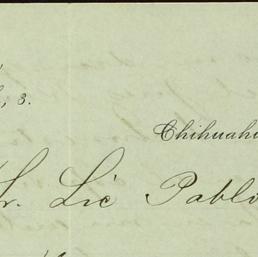 3.
Chihuahu
Sr. Lic Pablo